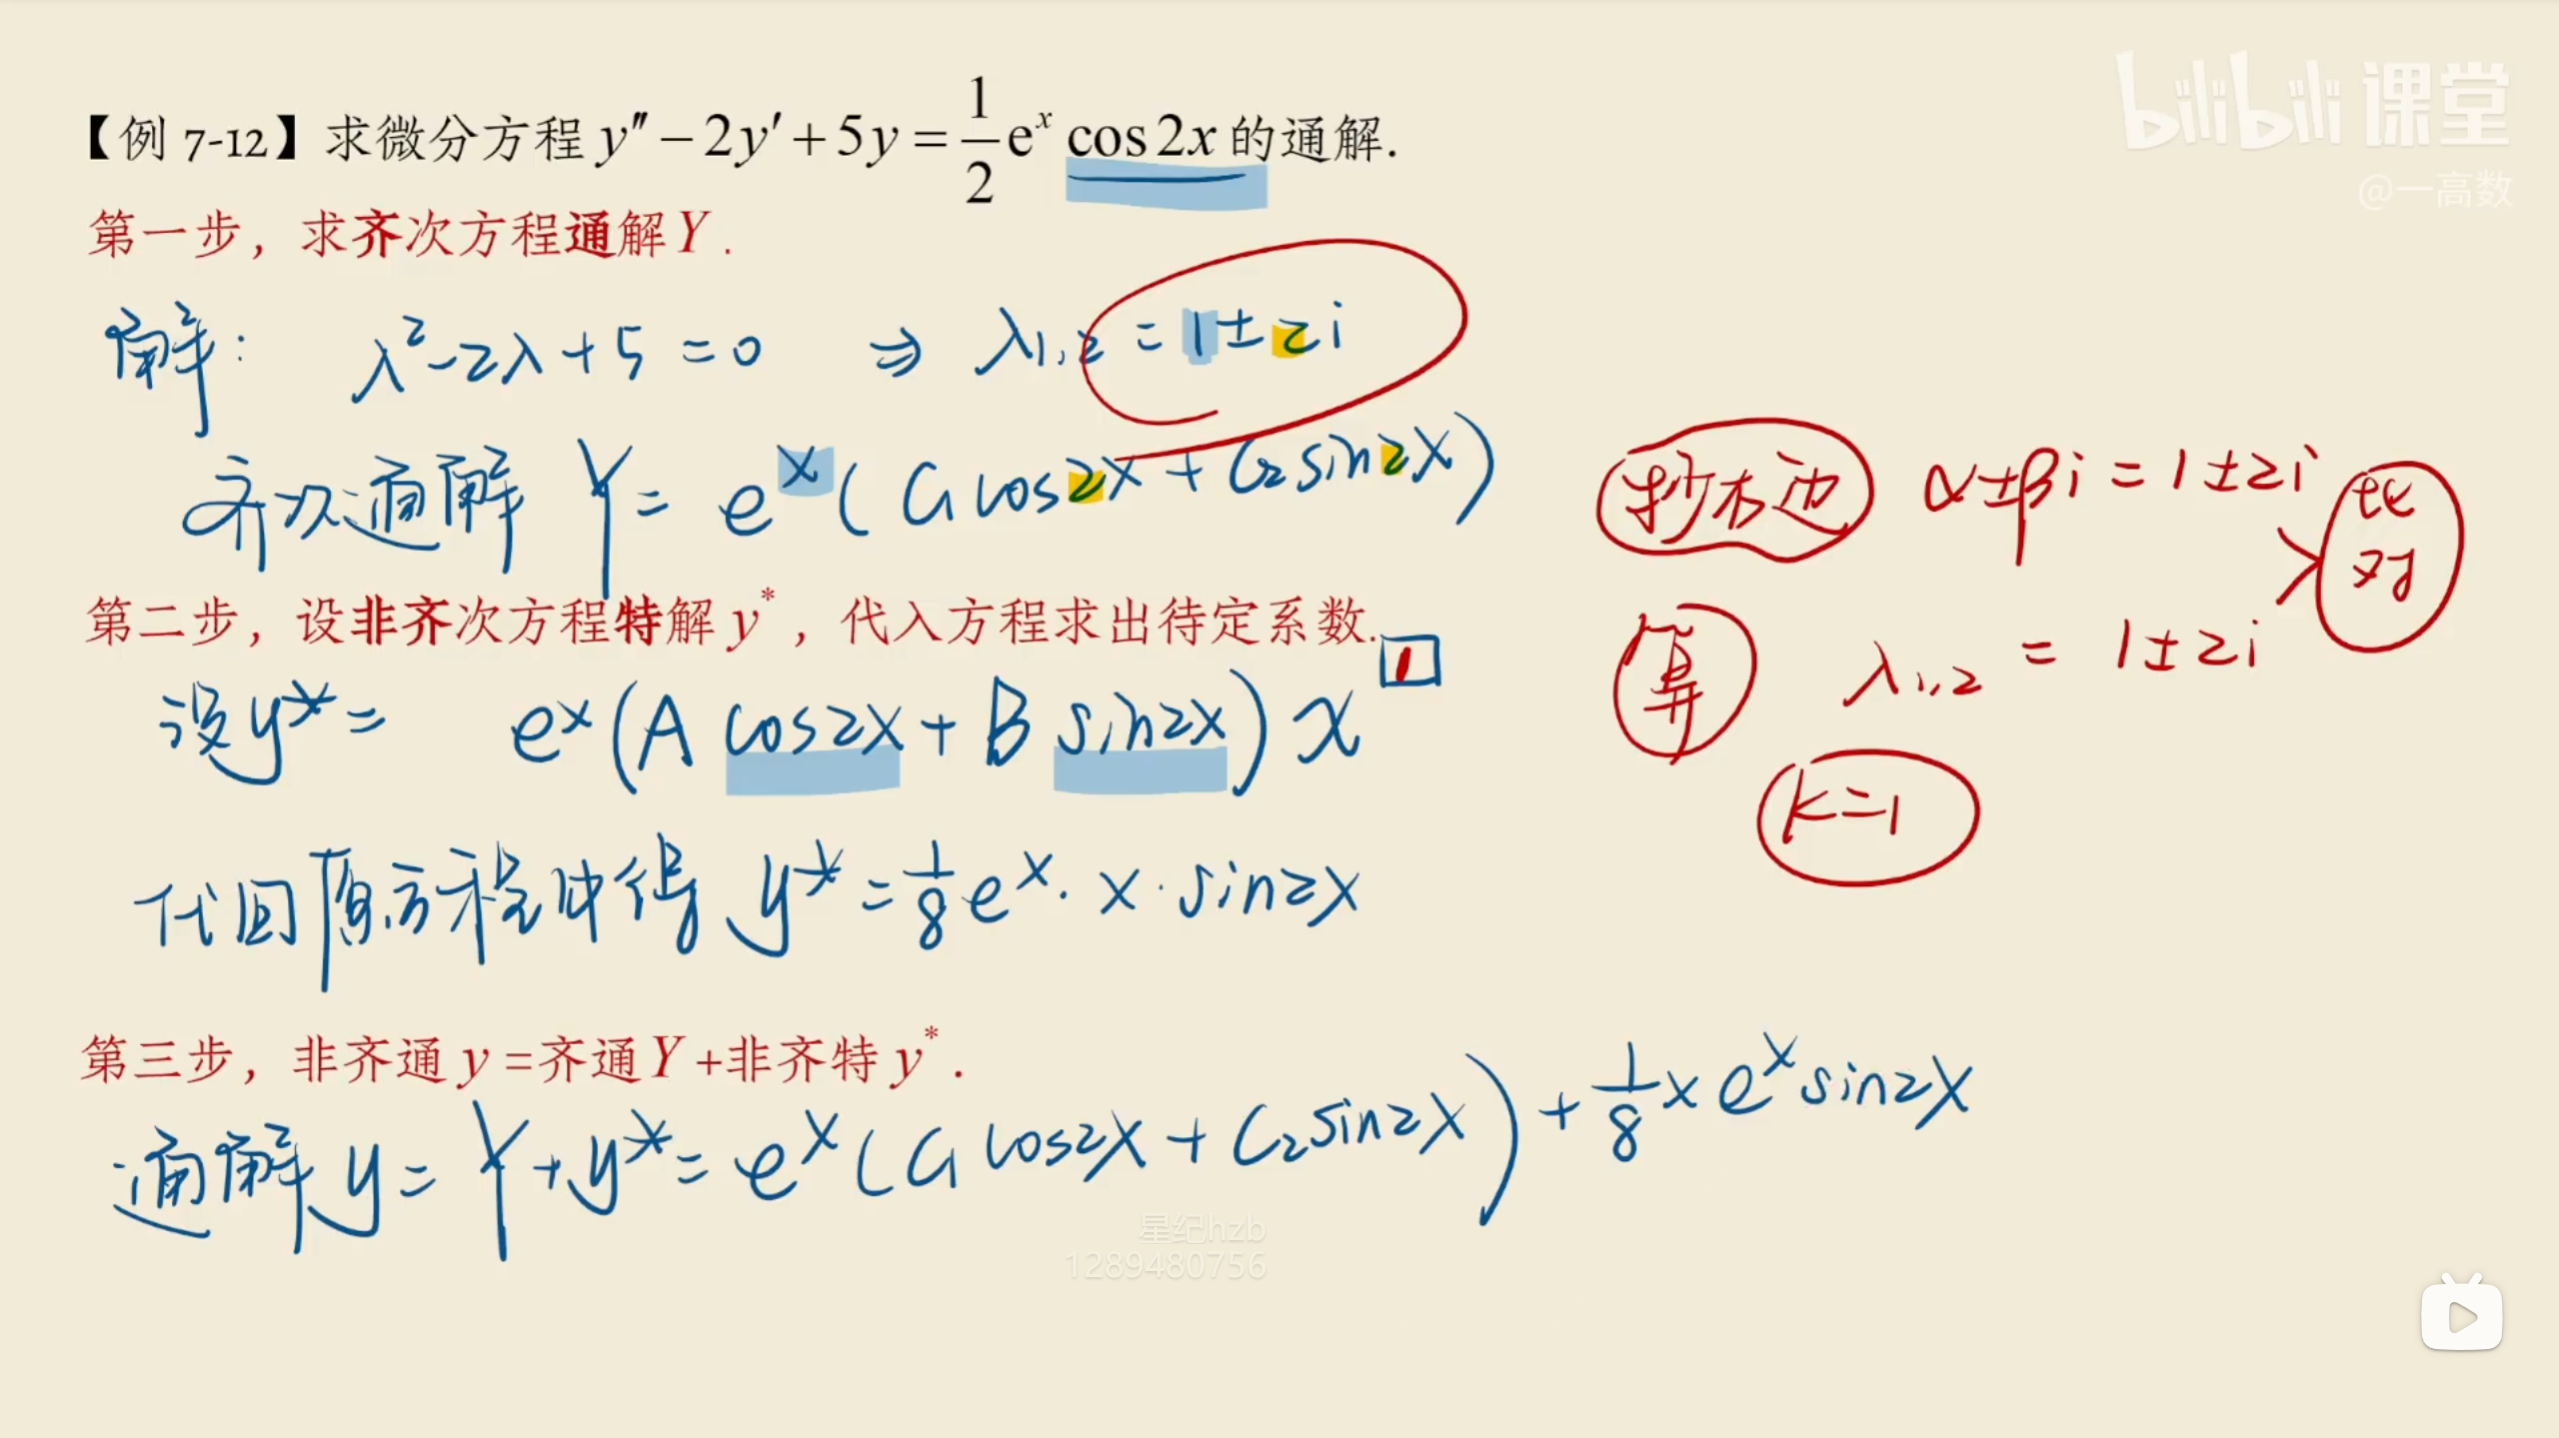 bilibili 课堂
@一高数
【例 7-12】求微分方程 y″ − 2y′ + 5y = 1/2 eˣ cos 2x 的通解.
第一步，求齐次方程通解 Y .
解: λ² − 2λ + 5 = 0 ⇒ λ₁,₂ = 1 ± 2i
齐次通解 Y = eˣ ( C₁ cos2x + C₂ sin2x )
抄右边 α ± βi = 1 ± 2i
比对
算 λ₁,₂ = 1 ± 2i
k=1
第二步，设非齐次方程特解 y*，代入方程求出待定系数.
设 y* = eˣ (A cos2x + B sin2x) x¹
代回原方程中得 y* = 1/8 eˣ · x · sin2x
第三步，非齐通 y =齐通 Y +非齐特 y* .
通解 y = Y + y* = eˣ (C₁ cos2x + C₂ sin2x) + 1/8 x eˣ sin2x
星纪hzb
1289480756